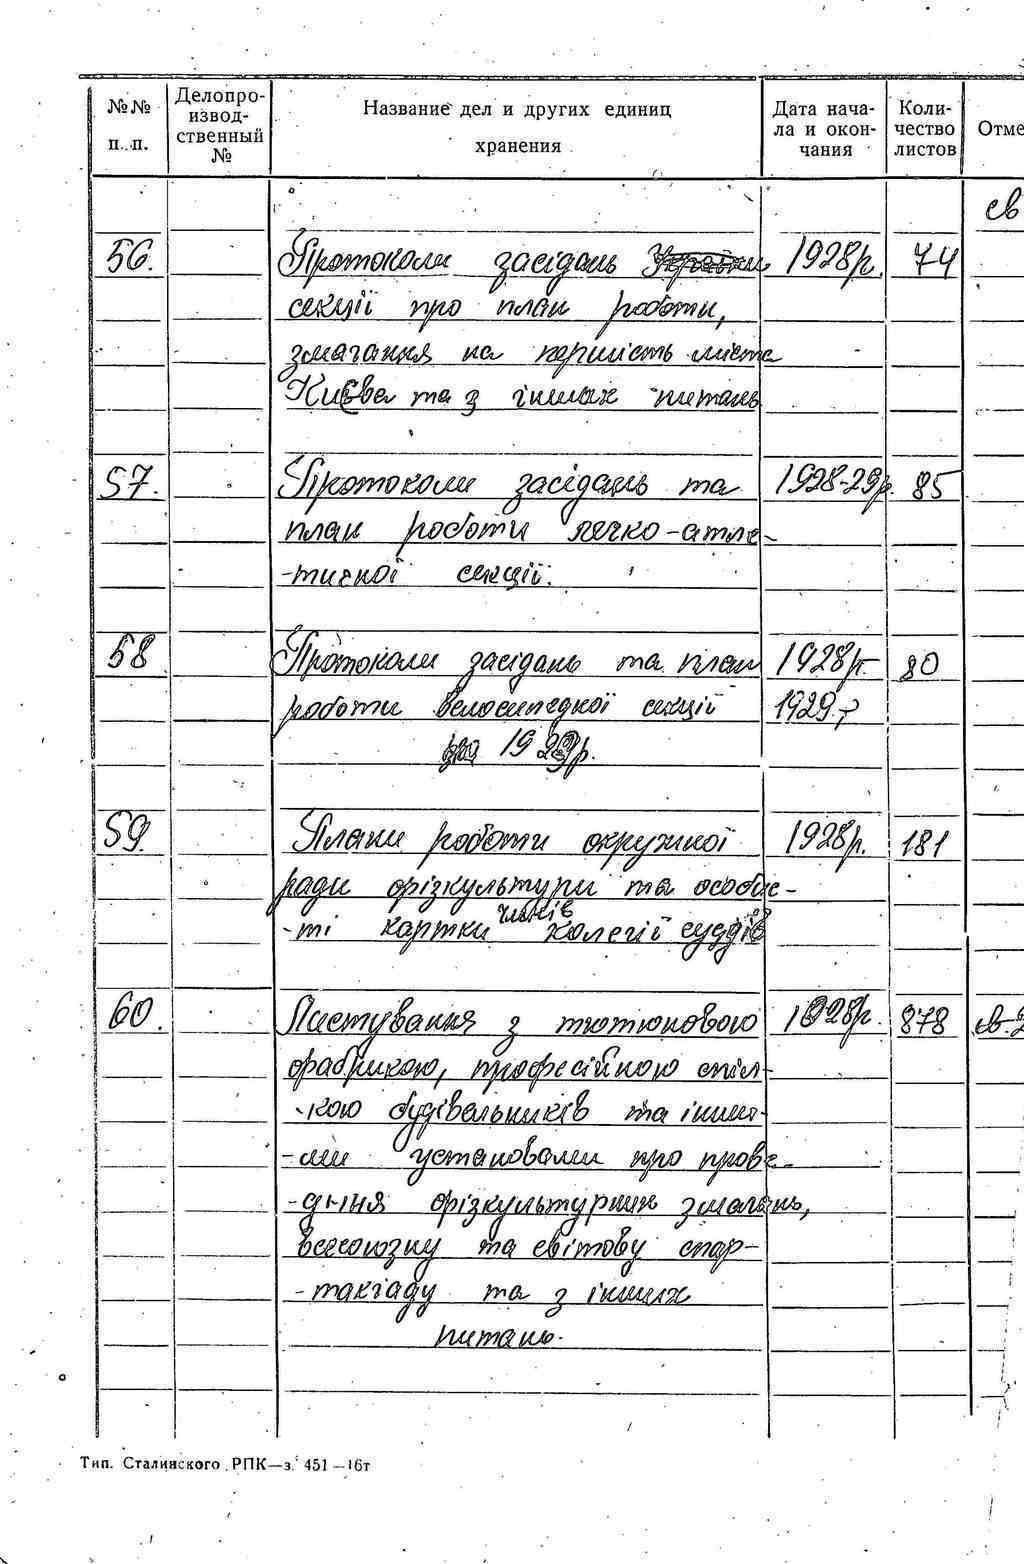 №№ п.п.
Делопро-
извод-
ственный
№
Название дел и других единиц
хранения
Дата нача-
ла и окон-
чания
Коли-
чество
листов
Отме
св
56. Протоколи засідань 1928р. 74
секції про план роботи,
змагання на першість міста
Києва та з інших питань
57. Протоколи засідань та 1928-29р. 85
план роботи легко-атле-
-тичної секції.
58 Протоколи засідань та план 1928р. 80
роботи велосипедної секції 1929.р
на 1929р.
59. Плани роботи окружної 1928р. 181
ради фізкультури та особис-
членів
-ті картки колегії суддів
60. Листування з тютюновою 1928р. 878 св.2
фабрикою, професійною спіл-
-кою будівельників та інши-
-ми установами про прове-
-дння фізкультурних змагань,
всесоюзну та світову спар-
-такіаду та з інших
питань.
Тип. Сталинского РПК—з. 451—16т